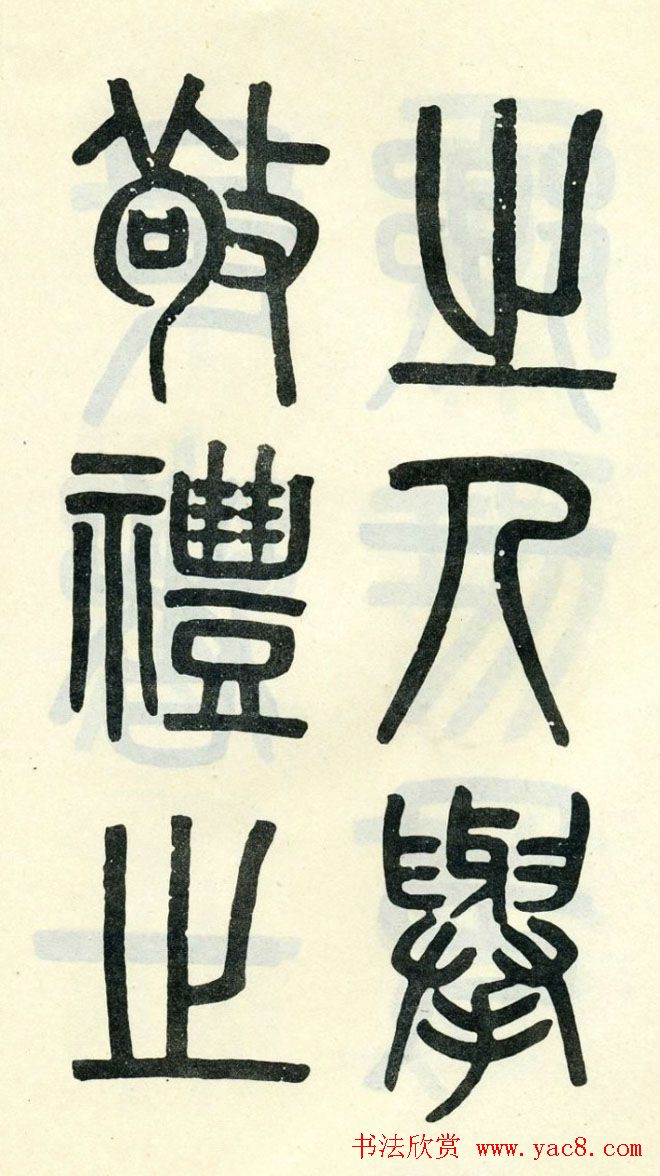 之人舉
敬禮之
书法欣赏 www.yac8.com